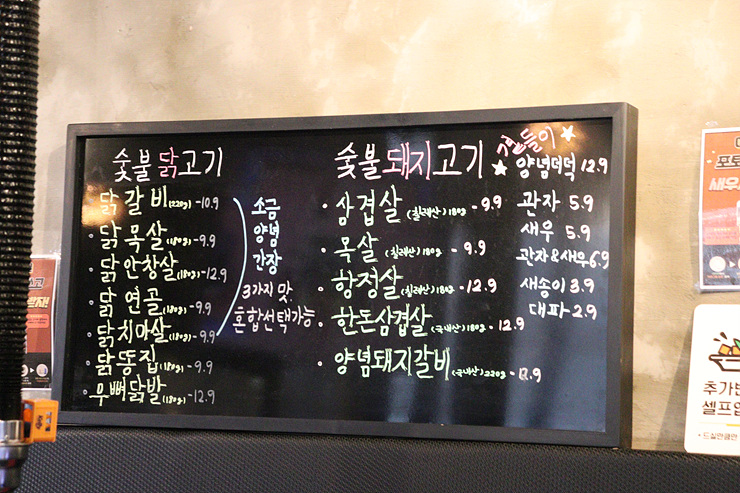 숯불 닭고기
닭갈비(220g)-10.9
·닭 목살(180g)-9.9
닭안창살(180g)-12.9
닭 연골(180g)-9.9
·닭치마살(180g)-9.9
닭똥집(180g)-9.9
무뼈닭발(180g)-12.9
소금
양념
간장
3가지 맛
혼합선택가능
숯불 돼지고기
·삼겹살(칠레산)180g-9.9
·목살(칠레산)180g-9.9
·항정살(칠레산)180g-12.9
·한돈삼겹살(국내산)180g-12.9
·양념돼지갈비(국내산)220g-12.9
곁들이
양념더덕 12.9
관자 5.9
새우 5.9
관자&새우 6.9
새송이 3.9
대파 2.9
추가반
셀프